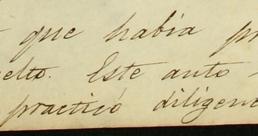 que habia pr
elto. Este auto
practicó diligen